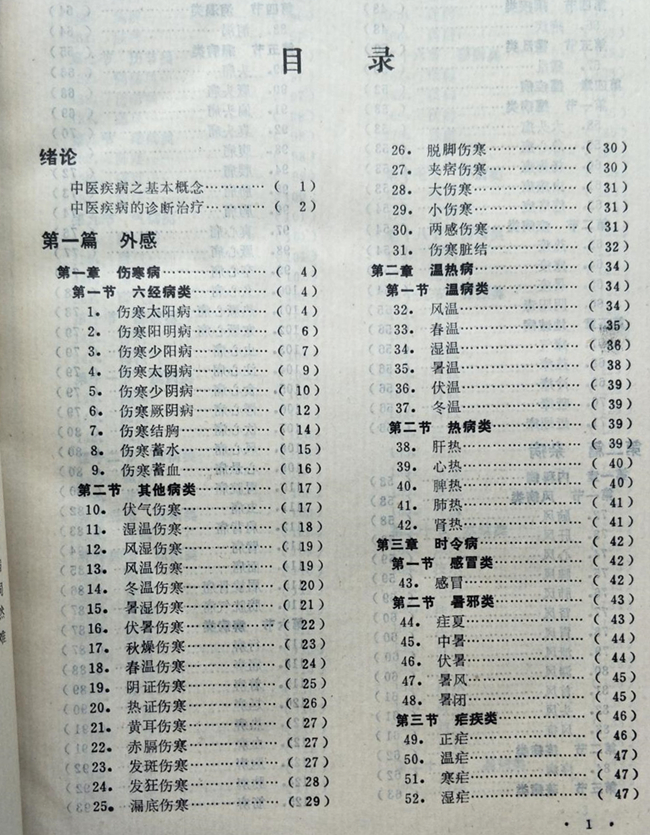 目录
绪论
中医疾病之基本概念…………( 1)
中医疾病的诊断治疗…………( 2)
第一篇 外感
第一章 伤寒病…………( 4)
第一节 六经病类…………( 4)
1. 伤寒太阳病…………( 4)
2. 伤寒阳明病…………( 6)
3. 伤寒少阳病…………( 7)
4. 伤寒太阴病…………( 9)
5. 伤寒少阴病…………(10)
6. 伤寒厥阴病…………(12)
7. 伤寒结胸…………(14)
8. 伤寒蓄水…………(15)
9. 伤寒蓄血…………(16)
第二节 其他病类…………(17)
10. 伏气伤寒…………(17)
11. 湿温伤寒…………(18)
12. 风湿伤寒…………(19)
13. 风温伤寒…………(19)
14. 冬温伤寒…………(20)
15. 暑湿伤寒…………(21)
16. 伏暑伤寒…………(22)
17. 秋燥伤寒…………(23)
18. 春温伤寒…………(24)
19. 阴证伤寒…………(25)
20. 热证伤寒…………(26)
21. 黄耳伤寒…………(27)
22. 赤膈伤寒…………(27)
23. 发斑伤寒…………(27)
24. 发狂伤寒…………(28)
25. 漏底伤寒…………(29)
26. 脱脚伤寒…………(30)
27. 夹痞伤寒…………(30)
28. 大伤寒…………(31)
29. 小伤寒…………(31)
30. 两感伤寒…………(31)
31. 伤寒脏结…………(32)
第二章 温热病…………(34)
第一节 温病类…………(34)
32. 风温…………(34)
33. 春温…………(35)
34. 湿温…………(36)
35. 暑温…………(38)
36. 伏温…………(39)
37. 冬温…………(39)
第二节 热病类…………(39)
38. 肝热…………(39)
39. 心热…………(40)
40. 脾热…………(40)
41. 肺热…………(41)
42. 肾热…………(41)
第三章 时令病…………(42)
第一节 感冒类…………(42)
43. 感冒…………(42)
第二节 暑邪类…………(43)
44. 疰夏…………(43)
45. 中暑…………(44)
46. 伏暑…………(44)
47. 暑风…………(45)
48. 暑闭…………(45)
第三节 疟疾类…………(46)
49. 正疟…………(46)
50. 温疟…………(47)
51. 寒疟…………(47)
52. 湿疟…………(47)
· 1 ·